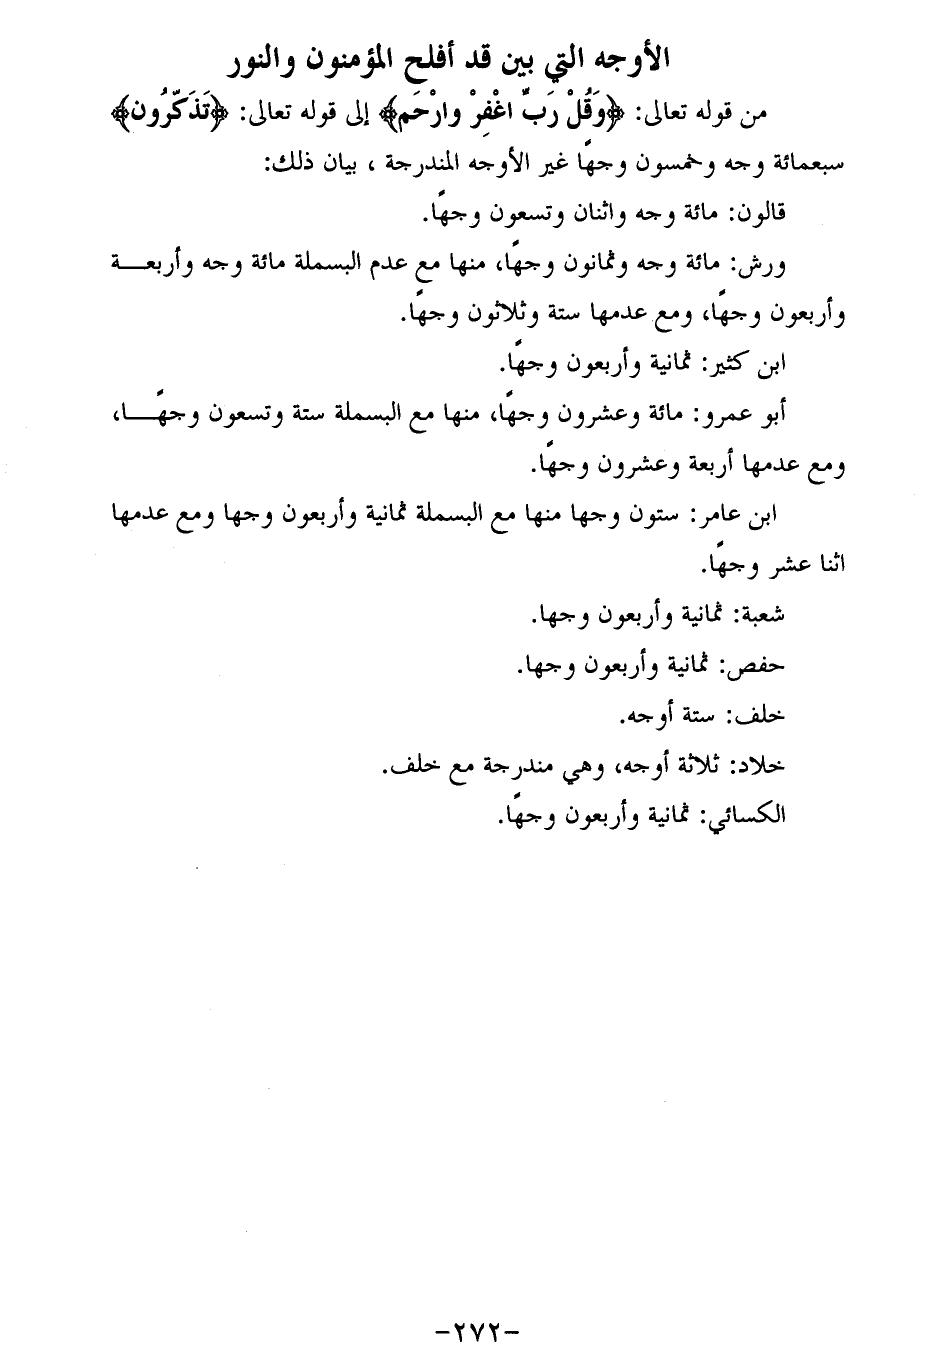 الأوجه التي بين قد أفلح المؤمنون والنور
من قوله تعالى: ﴿وَقُلْ رَبِّ اغْفِرْ وارْحَم﴾ إلى قوله تعالى: ﴿تَذَكّرُون﴾
سبعمائة وجه وخمسون وجهًا غير الأوجه المندرجة ، بيان ذلك:
قالون: مائة وجه واثنان وتسعون وجهًا.
ورش: مائة وجه وثمانون وجهًا، منها مع عدم البسملة مائة وجه وأربعـــة
وأربعون وجهًا، ومع عدمها ستة وثلاثون وجهًا.
ابن كثير: ثمانية وأربعون وجهًا.
أبو عمرو: مائة وعشرون وجهًا، منها مع البسملة ستة وتسعون وجهًـــا،
ومع عدمها أربعة وعشرون وجهًا.
ابن عامر: ستون وجها منها مع البسملة ثمانية وأربعون وجها ومع عدمها
اثنا عشر وجهًا.
شعبة: ثمانية وأربعون وجها.
حفص: ثمانية وأربعون وجها.
خلف: ستة أوجه.
خلاد: ثلاثة أوجه، وهي مندرجة مع خلف.
الكسائي: ثمانية وأربعون وجهًا.
-٢٧٢-